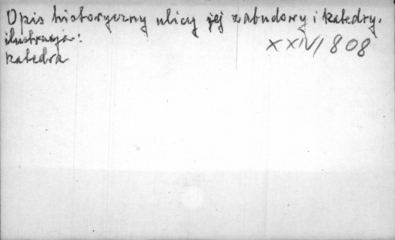 Opis historyczny ulicy jej zabudowy i katedry.
ilustracja:
XXIV/808
katedra